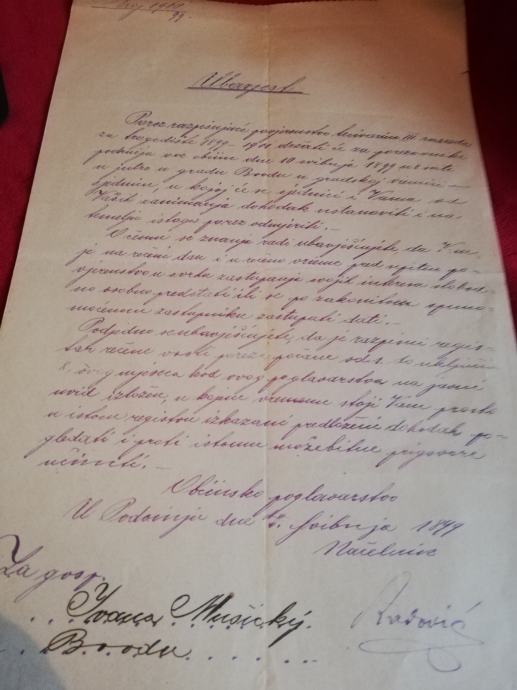 Broj 1919
99.
Ubavjest
Porez razpisujuće povjerenstvo tecivarine III razreda
za trogodište 1899 - 1901 držati će za porezovnike
područja ove obćine dne 10 svibnja 1899 u
u jutro u gradu Brodu u gradskoj vjećnici
sjednicu, u kojoj će se sjednici i Vama od
Vaših zanimanja dohodak ustanoviti i na
temelju istoga porez odmjeriti. -
O čemu se znanja radi ubavješćujete, da Vam
je na rečeni dan i u rečeno vrieme pred njeno po-
vjerenstvo u svrhu zastupanja svojih interesa slobod-
no osobno predstati ili se po zakonitom opuno-
moćenom zastupniku zastupati dati. -
Podjedno se ubavješćujete, da je razpisni regis-
tar rečene vrsti poreza počevši od 1. do uključivo
8. ovog mjeseca kod ovog poglavarstva na javni
uvid izložen, u kojem vremenu stoji Vam prosto
u istom registru izkazani podloženi dohodak po-
gledati i proti istomu možebitne prigovore
učiniti. -
Obćinsko poglavarstvo
U Podvinju dne svibnja 1899
Načelnik
Za gosp.
Ivana Mušicky.
Brodu